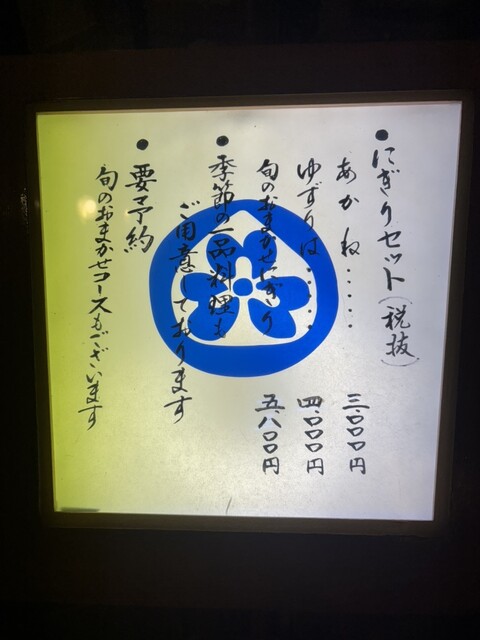 ●にぎりセット(税抜)
あかね‥‥‥三、〇〇〇円
ゆずりは‥‥‥四、〇〇〇円
旬のおまかせにぎり 五、八〇〇円
●季節の一品料理も
ご用意しております
●要予約
旬のおまかせコースもございます